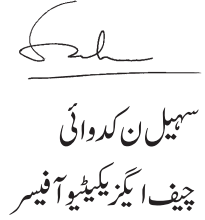 سہیل ن کدوائی
چیف ایگزیکیٹیو آفیسر